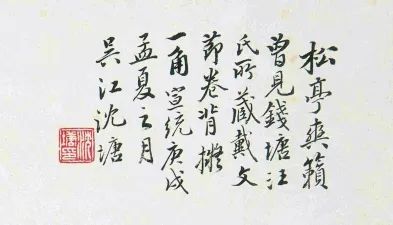 松亭爽籟
曾見錢塘汪
氏所藏戴文
節卷背撫
一角宣統庚戌
孟夏之月
吳江沈塘
沈塘印